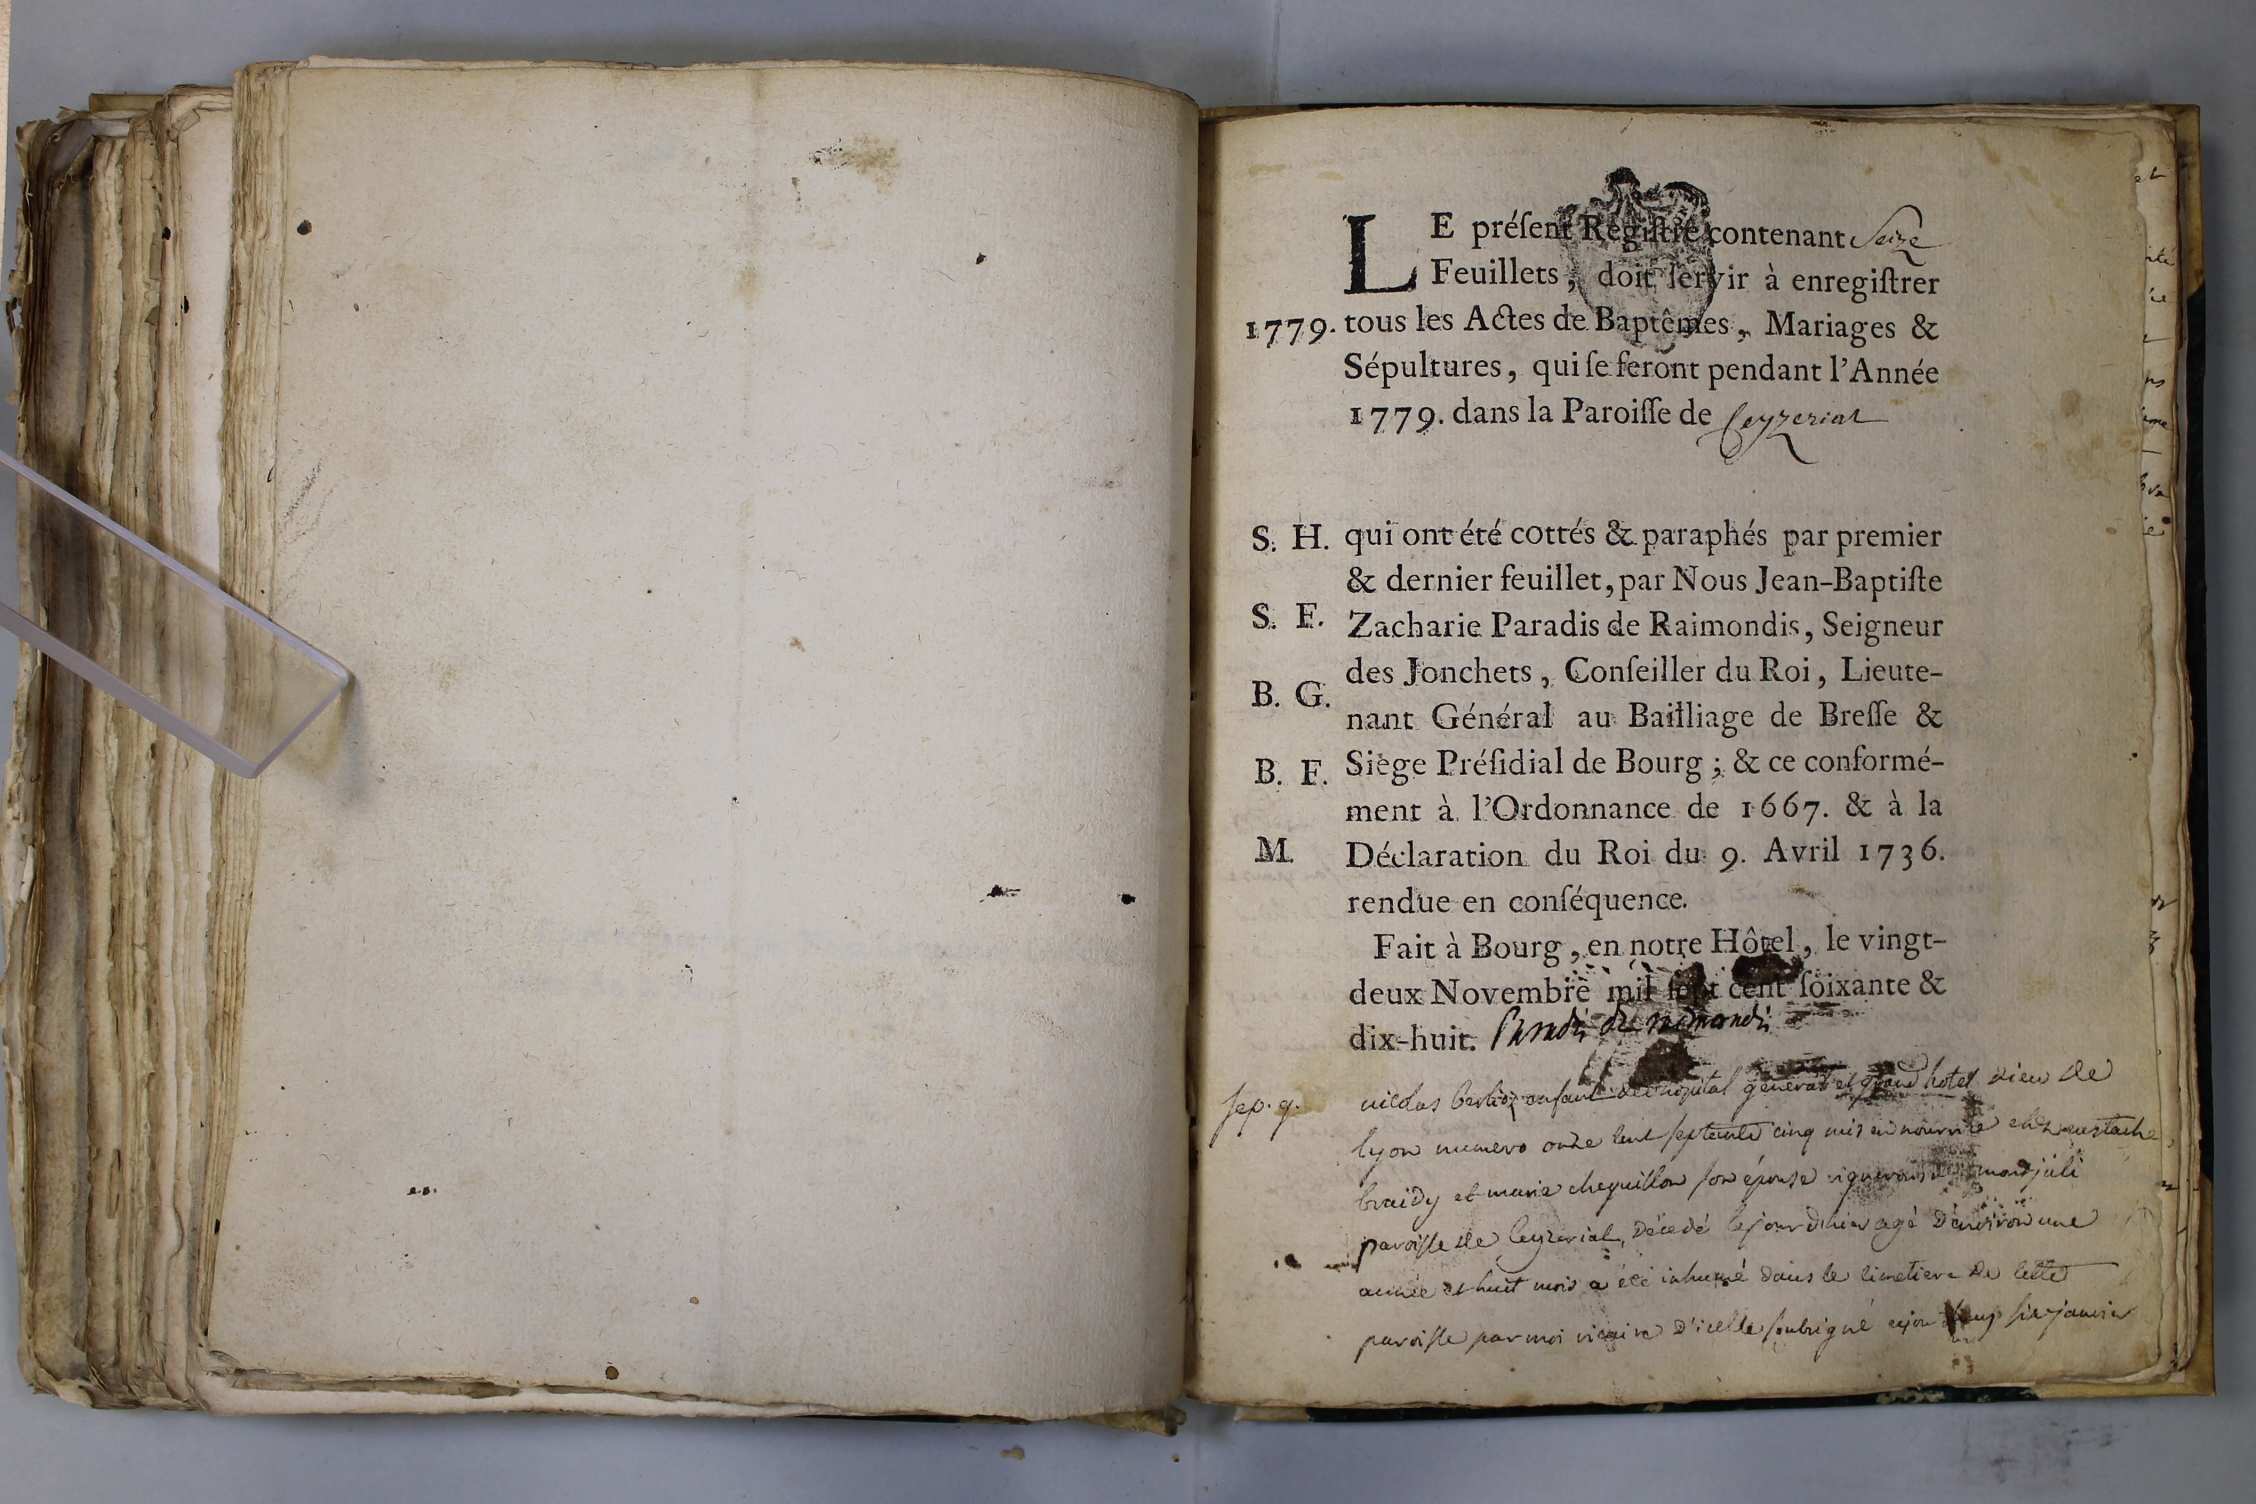 LE préſent Regiſtre contenant Seize
Feuillets, doit ſervir à enregiſtrer
1779. tous les Actes de Baptêmes, Mariages &
Sépultures, qui ſe feront pendant l'Année
1779. dans la Paroiſſe de Ceyzeriat
S. H. qui ont été cottés & paraphés par premier
& dernier feuillet, par Nous Jean-Baptiſte
S. F. Zacharie Paradis de Raimondis, Seigneur
des Jonchets, Conſeiller du Roi, Lieute-
B. G. nant Général au Bailliage de Breſſe &
B. F. Siège Préſidial de Bourg; & ce conformé-
ment à l'Ordonnance de 1667. & à la
M. Déclaration du Roi du 9. Avril 1736.
rendue en conſéquence.
Fait à Bourg, en notre Hôtel, le vingt-
deux Novembre mil ſept cent ſoixante &
dix-huit. Paradis de raimondis
sep. nicolas berlioz enfant de l'hopital general et grand hotel dieu de
lyon numero onze cent septente cinq mis en nourrice chez eustache
braidy et marie chequillon son épouse vignerons à montjuli
paroisse de Ceyzeriat, décédé le jour d'hier agé d'environ une
année et huit mois a été inhumé dans le cimetiere de cette
paroisse par moi vicaire d'icelle soubsigné six janvier